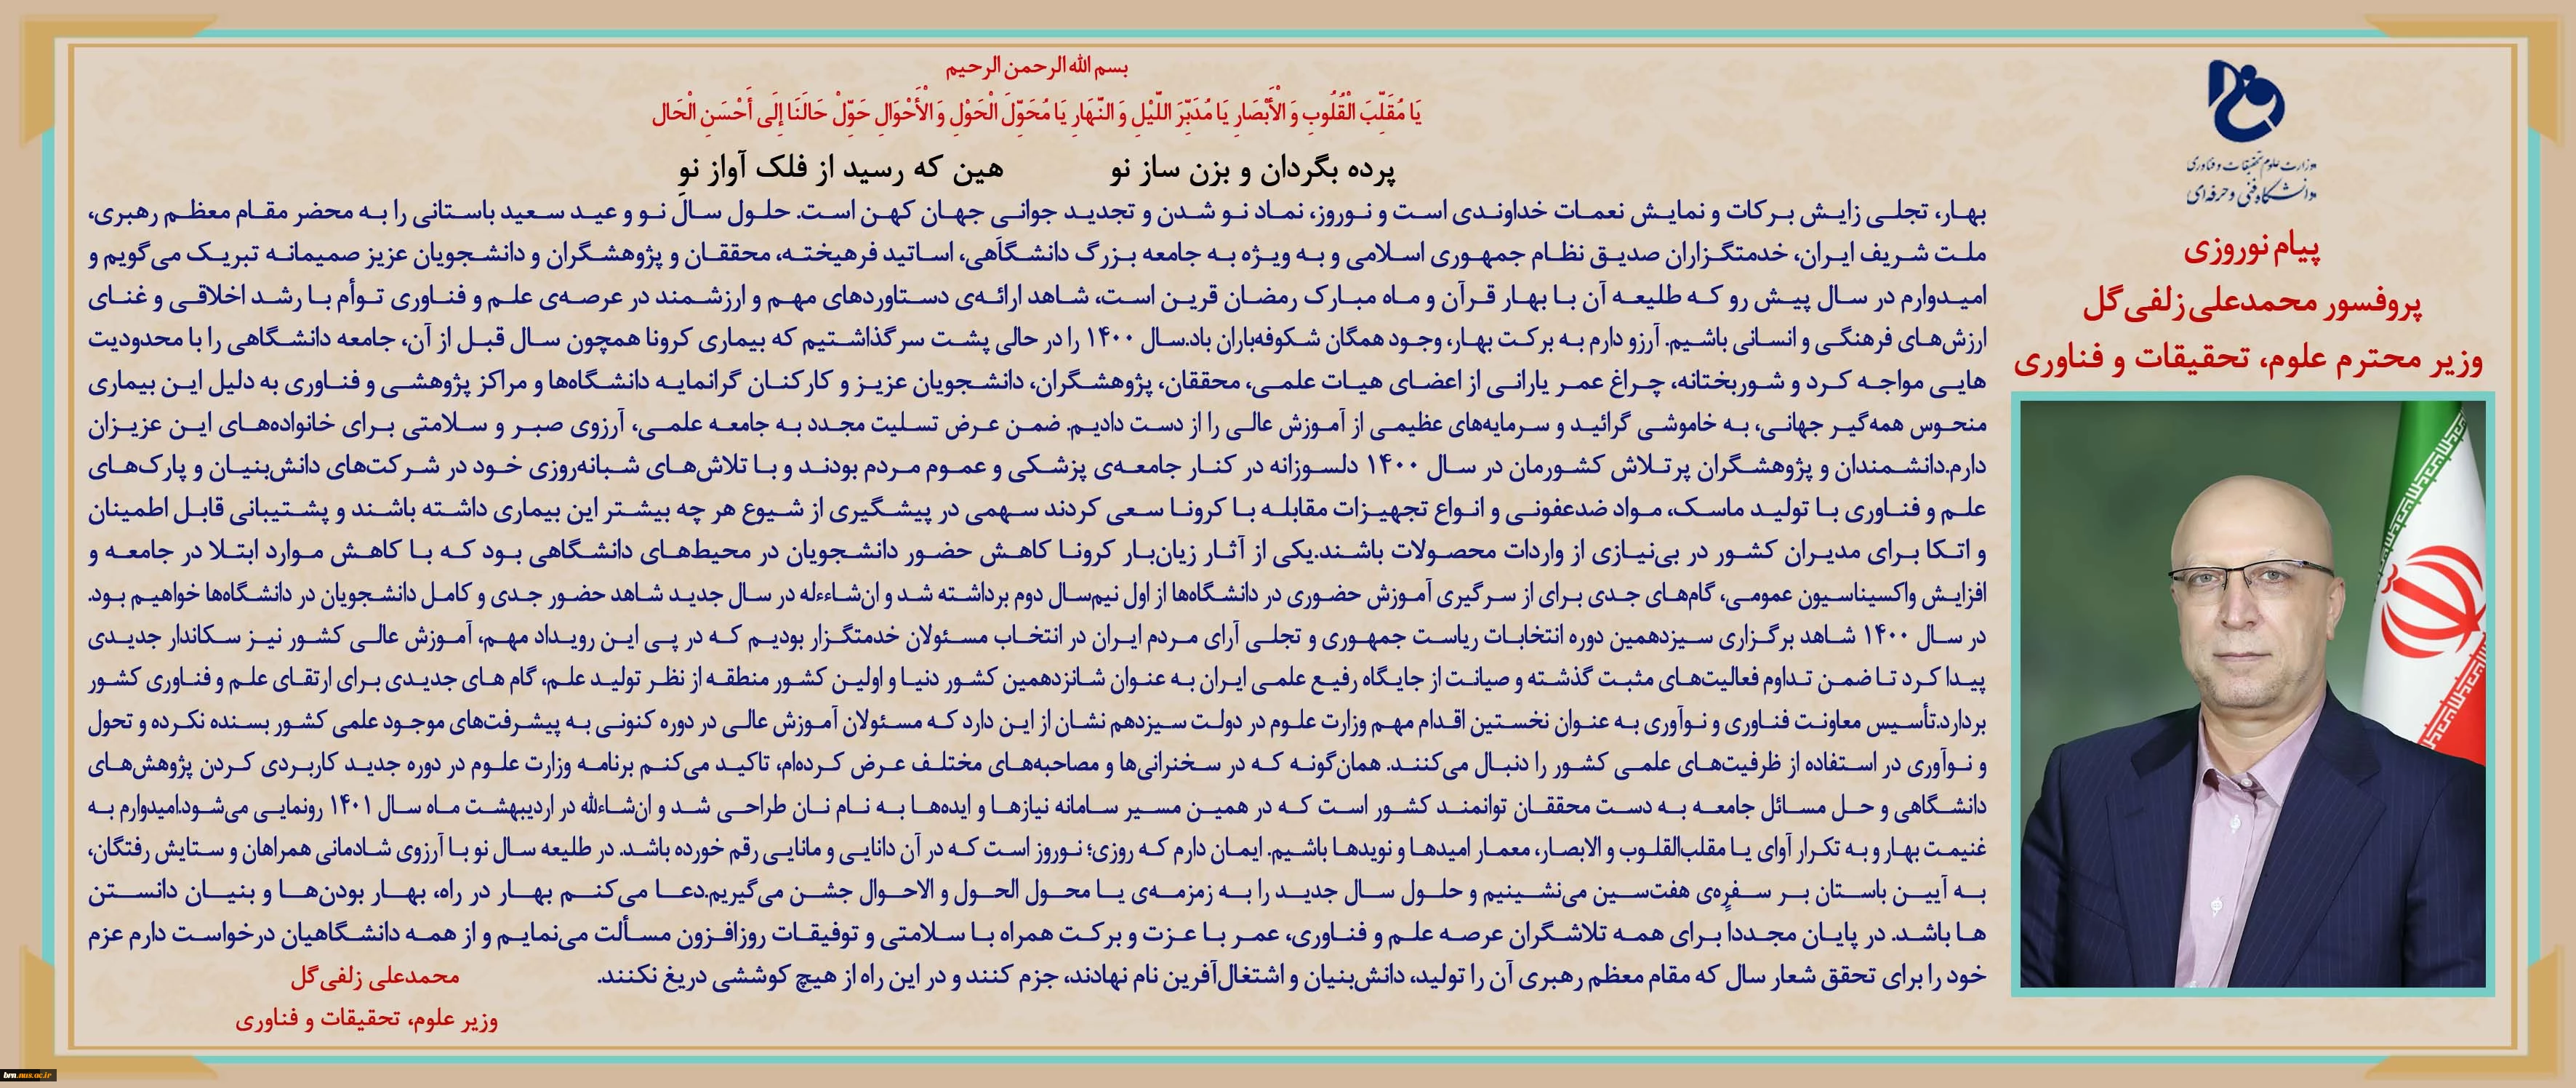 وزارت علوم تحقیقات و فناوری
دانشگاه فنی و حرفه‌ای
پیام نوروزی
پروفسور محمدعلی زلفی‌گل
وزیر محترم علوم، تحقیقات و فناوری
بسم الله الرحمن الرحیم
یَا مُقَلِّبَ الْقُلُوبِ وَ الْأَبْصَارِ یَا مُدَبِّرَ اللَّیْلِ وَ النَّهَارِ یَا مُحَوِّلَ الْحَوْلِ وَ الْأَحْوَالِ حَوِّلْ حَالَنَا إِلَی أَحْسَنِ الْحَال
پرده بگردان و بزن ساز نو هین که رسید از فلک آواز نو
بهار، تجلی زایش برکات و نمایش نعمات خداوندی است و نوروز، نماد نو شدن و تجدید جوانی جهان کهن است. حلول سال نو و عید سعید باستانی را به محضر مقام معظم رهبری،
ملت شریف ایران، خدمتگزاران صدیق نظام جمهوری اسلامی و به ویژه به جامعه بزرگ دانشگاهی، اساتید فرهیخته، محققان و پژوهشگران و دانشجویان عزیز صمیمانه تبریک می‌گویم و
امیدوارم در سال پیش رو که طلیعه آن با بهار قرآن و ماه مبارک رمضان قرین است، شاهد ارائه‌ی دستاوردهای مهم و ارزشمند در عرصه‌ی علم و فناوری توأم با رشد اخلاقی و غنای
ارزش‌های فرهنگی و انسانی باشیم. آرزو دارم به برکت بهار، وجود همگان شکوفه‌باران باد.سال ۱۴۰۰ را در حالی پشت سر گذاشتیم که بیماری کرونا همچون سال قبل از آن، جامعه دانشگاهی را با محدودیت
هایی مواجه کرد و شوربختانه، چراغ عمر یارانی از اعضای هیات علمی، محققان، پژوهشگران، دانشجویان عزیز و کارکنان گرانمایه دانشگاه‌ها و مراکز پژوهشی و فناوری به دلیل این بیماری
منحوس همه‌گیر جهانی، به خاموشی گرائید و سرمایه‌های عظیمی از آموزش عالی را از دست دادیم. ضمن عرض تسلیت مجدد به جامعه علمی، آرزوی صبر و سلامتی برای خانواده‌های این عزیزان
دارم.دانشمندان و پژوهشگران پرتلاش کشورمان در سال ۱۴۰۰ دلسوزانه در کنار جامعه‌ی پزشکی و عموم مردم بودند و با تلاش‌های شبانه‌روزی خود در شرکت‌های دانش‌بنیان و پارک‌های
علم و فناوری با تولید ماسک، مواد ضدعفونی و انواع تجهیزات مقابله با کرونا سعی کردند سهمی در پیشگیری از شیوع هر چه بیشتر این بیماری داشته باشند و پشتیبانی قابل اطمینان
و اتکا برای مدیران کشور در بی‌نیازی از واردات محصولات باشند.یکی از آثار زیان‌بار کرونا کاهش حضور دانشجویان در محیط‌های دانشگاهی بود که با کاهش موارد ابتلا در جامعه و
افزایش واکسیناسیون عمومی، گام‌های جدی برای از سرگیری آموزش حضوری در دانشگاه‌ها از اول نیم‌سال دوم برداشته شد و ان‌شاءءله در سال جدید شاهد حضور جدی و کامل دانشجویان در دانشگاه‌ها خواهیم بود.
در سال ۱۴۰۰ شاهد برگزاری سیزدهمین دوره انتخابات ریاست جمهوری و تجلی آرای مردم ایران در انتخاب مسئولان خدمتگزار بودیم که در پی این رویداد مهم، آموزش عالی کشور نیز سکاندار جدیدی
پیدا کرد تا ضمن تداوم فعالیت‌های مثبت گذشته و صیانت از جایگاه رفیع علمی ایران به عنوان شانزدهمین کشور دنیا و اولین کشور منطقه از نظر تولید علم، گام های جدیدی برای ارتقای علم و فناوری کشور
بردارد.تأسیس معاونت فناوری و نوآوری به عنوان نخستین اقدام مهم وزارت علوم در دولت سیزدهم نشان از این دارد که مسئولان آموزش عالی در دوره کنونی به پیشرفت‌های موجود علمی کشور بسنده نکرده و تحول
و نوآوری در استفاده از ظرفیت‌های علمی کشور را دنبال می‌کنند. همان‌گونه که در سخنرانی‌ها و مصاحبه‌های مختلف عرض کرده‌ام، تاکید می‌کنم برنامه وزارت علوم در دوره جدید کاربردی کردن پژوهش‌های
دانشگاهی و حل مسائل جامعه به دست محققان توانمند کشور است که در همین مسیر سامانه نیازها و ایده‌ها به نام نان طراحی شد و ان‌شاءالله در اردیبهشت ماه سال ۱۴۰۱ رونمایی می‌شود.امیدوارم به
غنیمت بهار و به تکرار آوای یا مقلب‌القلوب و الابصار، معمار امیدها و نویدها باشیم. ایمان دارم که روزی؛ نوروز است که در آن دانایی و مانایی رقم خورده باشد. در طلیعه سال نو با آرزوی شادمانی همراهان و ستایش رفتگان،
به آیین باستان بر سفره‌ی هفت‌سین می‌نشینیم و حلول سال جدید را به زمزمه‌ی یا محول الحول و الاحوال جشن می‌گیریم.دعا می‌کنم بهار در راه، بهار بودن‌ها و بنیان دانستن
ها باشد. در پایان مجددا برای همه تلاشگران عرصه علم و فناوری، عمر با عزت و برکت همراه با سلامتی و توفیقات روزافزون مسألت می‌نمایم و از همه دانشگاهیان درخواست دارم عزم
خود را برای تحقق شعار سال که مقام معظم رهبری آن را تولید، دانش‌بنیان و اشتغال‌آفرین نام نهادند، جزم کنند و در این راه از هیچ کوششی دریغ نکنند.
محمدعلی زلفی‌گل
وزیر علوم، تحقیقات و فناوری
brn.nus.ac.ir